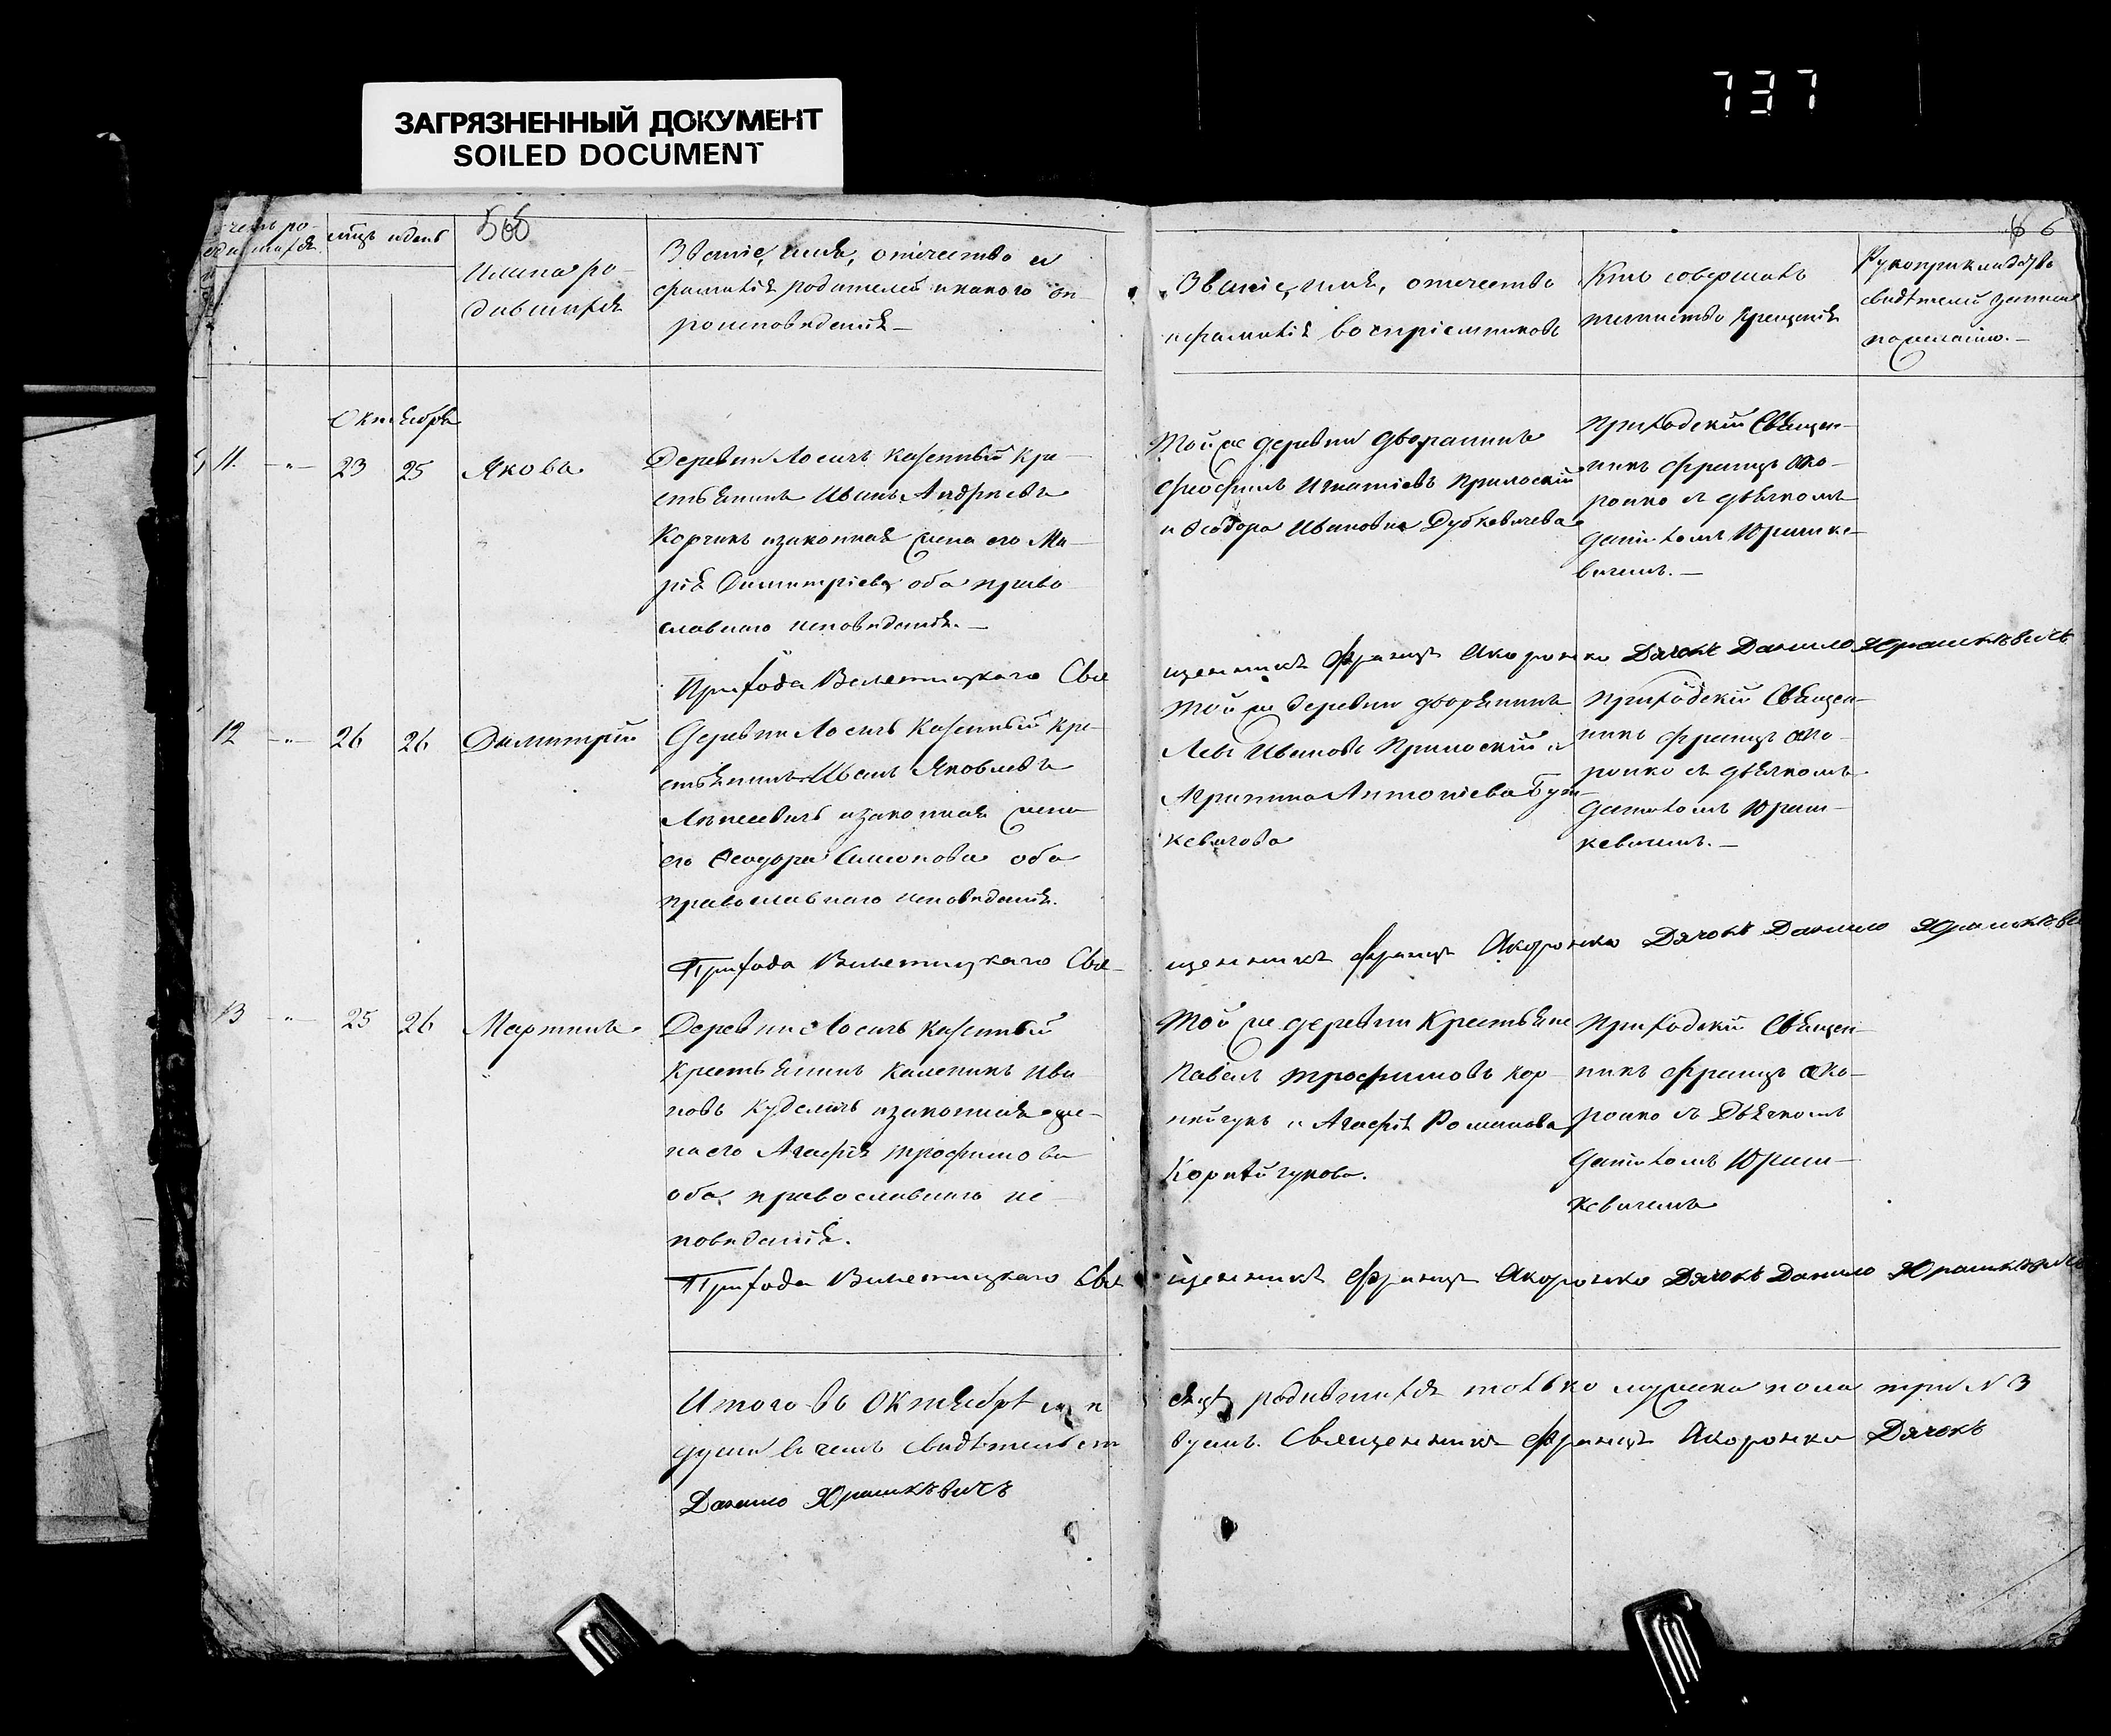 737
ЗАГРЯЗНЕННЫЙ ДОКУМЕНТ
SOILED DOCUMENT
6
Имина ро-
дившихся
Званіе, имя, отчество и
фамилія родителей и какого вѣ-
роисповеданія —
Званіе, имя, отчество
и фамилія воспріемниковъ
Кто совершалъ
таинство крещенія
Рукоприкладство
свидѣтелей записи
по желанію. —
Октябрь
11 - „ - 23 25 Якова
Деревни Лосичъ казенный кре-
стьянинъ Иванъ Андреевъ
Корчикъ и законная жена его Ма-
рія Димитріева оба право
славнаго исповеданія. —
Той же деревни дворянинъ
Феофилъ Игнатіевъ
и Ѳеодора Ивановна Дубкевичева
Приходскій Священ-
никъ Францъ Ско-
ронко съ дьячкомъ
Даніиломъ Юрашке-
вичемъ. —
Прихода Вилетицкаго Свя
щенникъ Францъ Скоронко Дячокъ Данило Юрашкѣвичъ
12 - „ - 26 26 Димитрій
Деревни Лосичъ казенный кре-
стьянинъ Иванъ Яковлевъ
и законная жена
его Ѳеодора Симонова оба
православнаго исповеданія.
Той же деревни дворянинъ
Левъ Ивановъ и
Агрипина Антоніева
кевичова
Приходскій Священ-
никъ Францъ Ско-
ронко съ дьячкомъ
Даніиломъ Юраш-
кевичемъ. —
Прихода Вилетицкаго Свя-
щенникъ Францъ Скоронко Дячокъ Данило Юрашкѣви
13 - „ - 25 26 Мартинъ
Деревни Лосичъ казенный
крестьянинъ Каленикъ Ива
новъ Куделичъ и законная же-
на его Агафія Трофимова
оба православнаго ис-
поведанія.
Той же деревни крестьяне
Павелъ Трофимовъ Кор-
нійчукъ и Агафія Романова
Корнійчукова.
Приходскій Священ-
никъ Францъ Ско-
ронко съ Дьячкомъ
Даніиломъ Юраш-
кевичемъ
Прихода Вилетицкаго Свя
щенникъ Францъ Скоронко Дячокъ Данило Юрашкѣвичъ
Итого въ Октябрѣ родившихся только мужеска пола три N 3
души въ чемъ свидѣтельст вуемъ. Священникъ Францъ Скоронко Дячокъ
Данило Юрашкѣвичъ